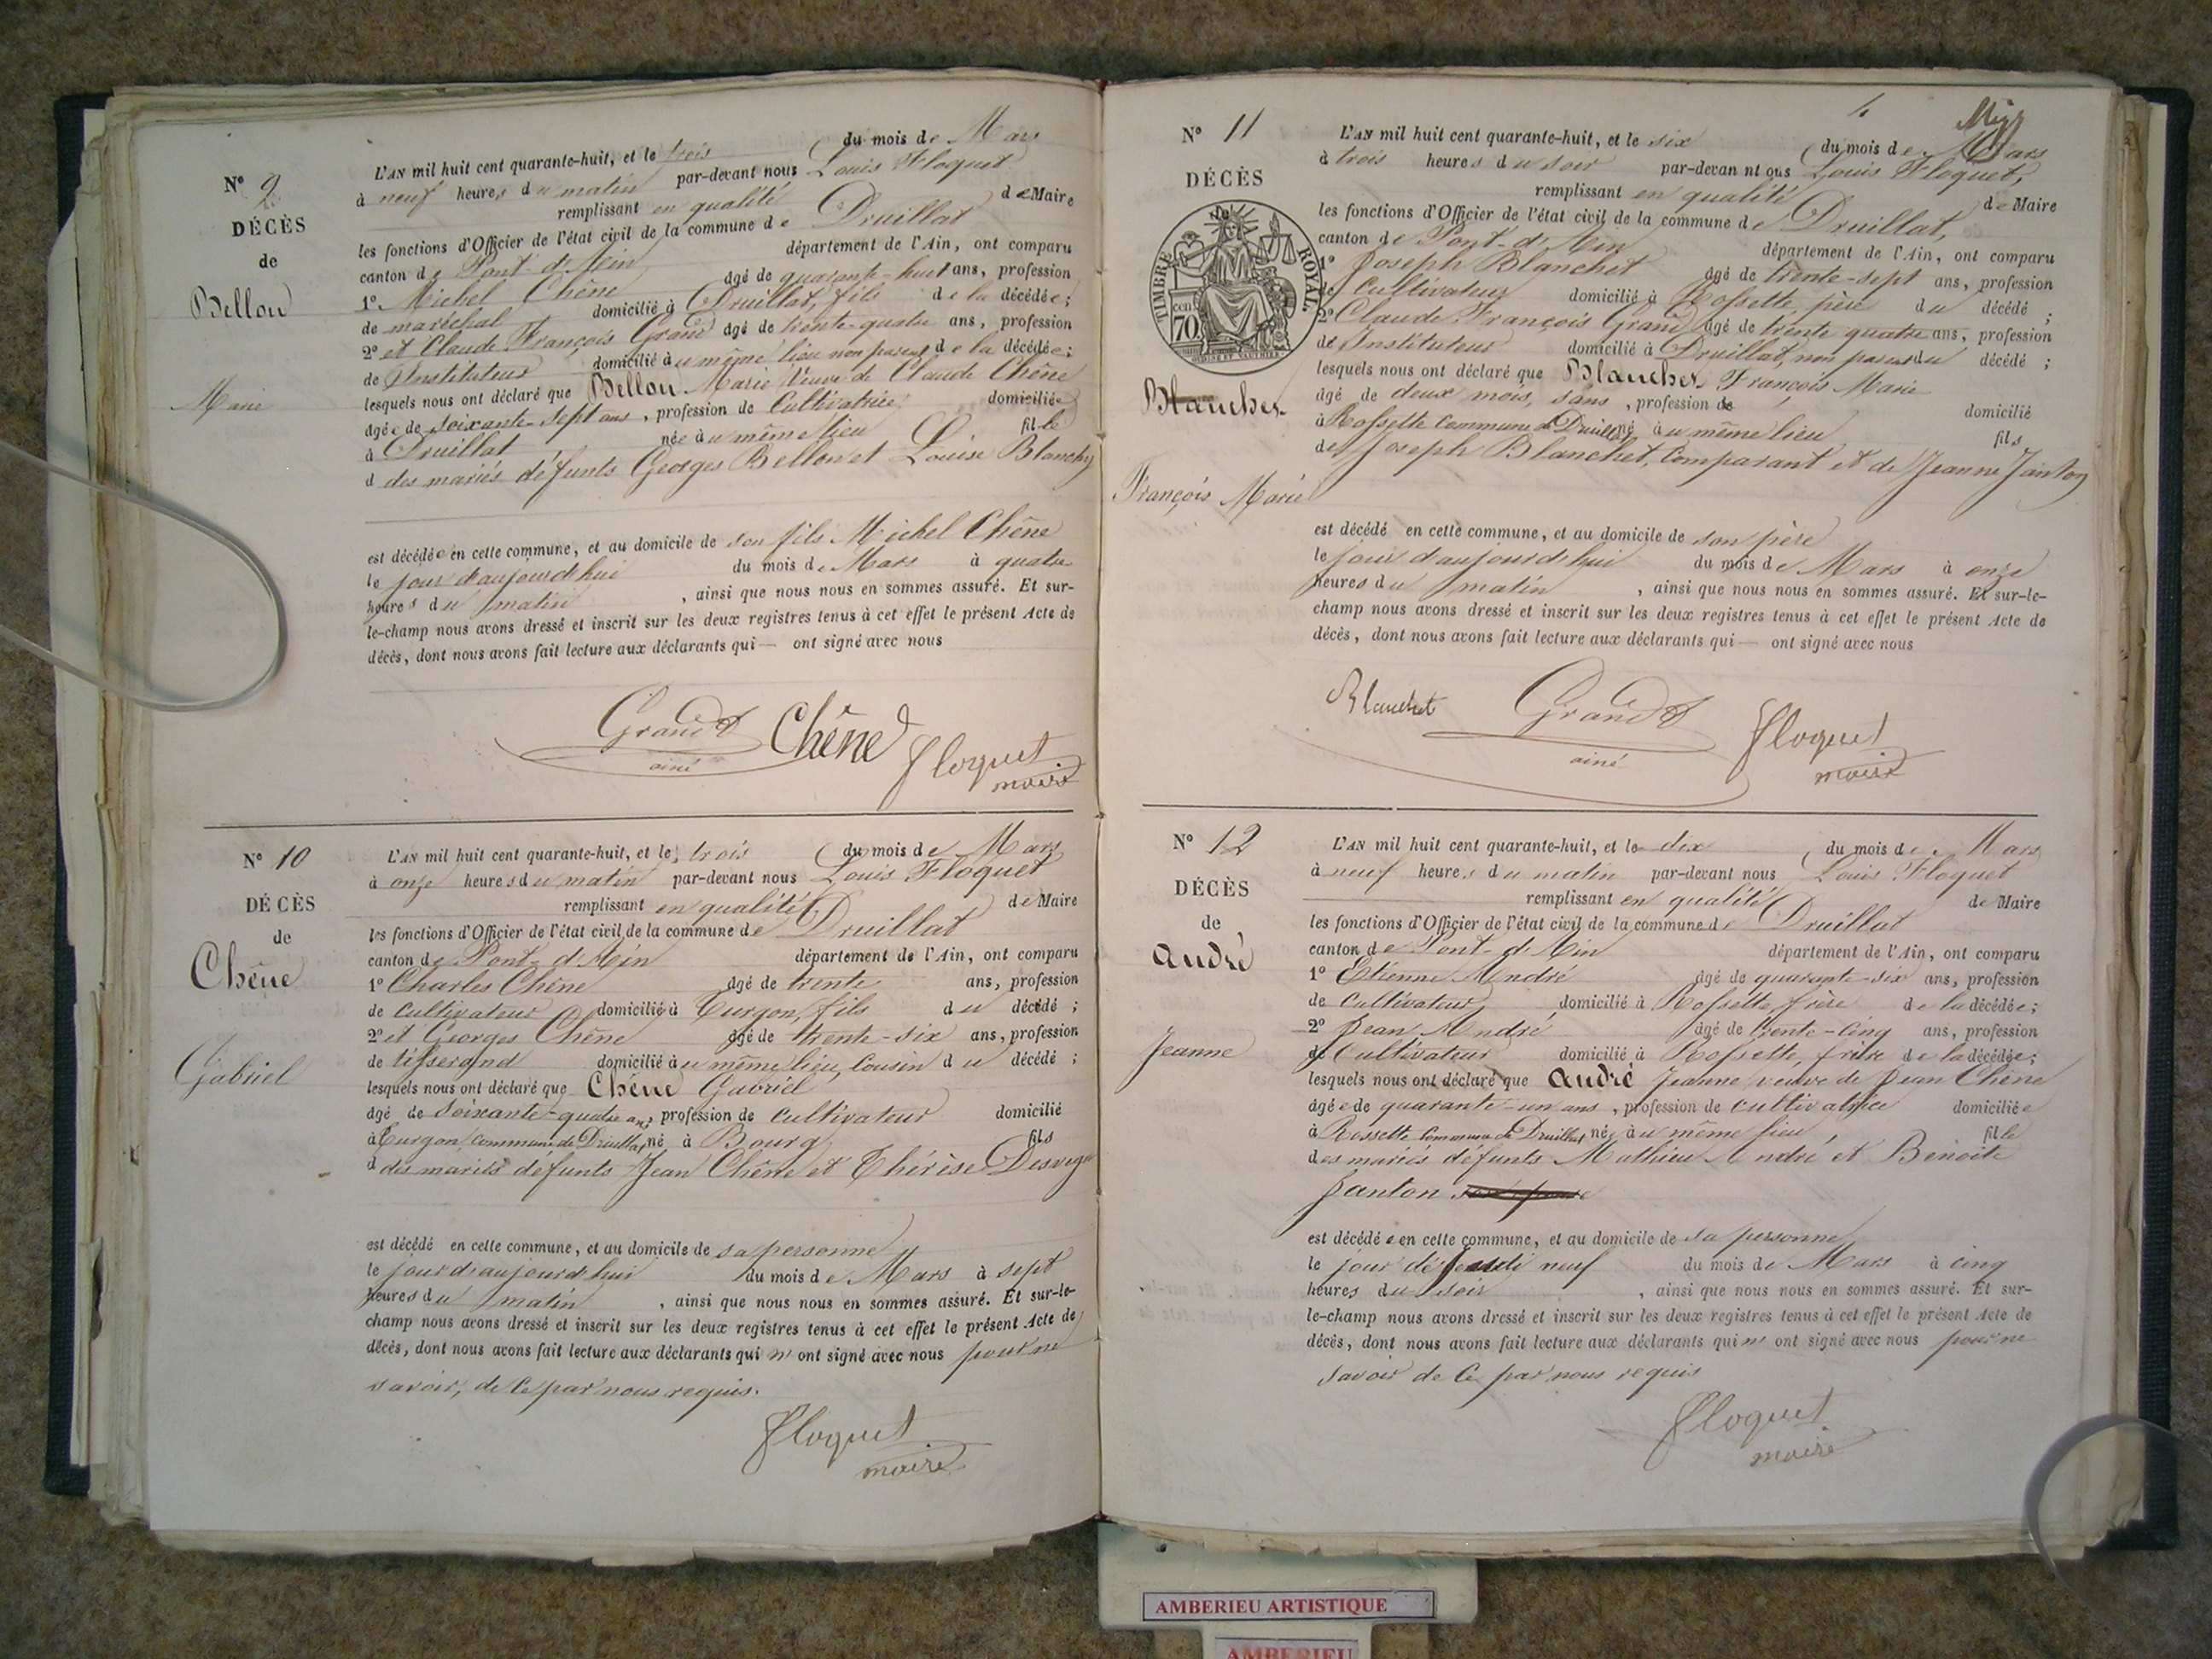 N° 9
DÉCÈS
de
Bellou
Marie
L'AN mil huit cent quarante-huit, et le trois du mois de Mars
à neuf heures du matin par-devant nous Louis Floquet
remplissant en qualité de Maire
les fonctions d'Officier de l'état civil de la commune de Druillat
canton de Pont-d'Ain département de l'Ain, ont comparu
1° Michel Chêne âgé de quarante-huit ans, profession
de maréchal domicilié à Druillat, fils de la décédée;
2° et Claude François Grand âgé de trente-quatre ans, profession
de Instituteur domicilié au même lieu non parent de la décédée;
lesquels nous ont déclaré que Bellou Marie Veuve de Claude Chêne
âgée de soixante-sept ans, profession de Cultivatrice domiciliée
à Druillat née au même lieu fille
d des mariés défunts Georges Bellou et Louise Blanchy
est décédée en cette commune, et au domicile de son fils Michel Chêne
le jour d'aujourd'hui du mois de Mars à quatre
heures du matin, ainsi que nous nous en sommes assuré. Et sur-
le-champ nous avons dressé et inscrit sur les deux registres tenus à cet effet le présent Acte de
décès, dont nous avons fait lecture aux déclarants qui — ont signé avec nous
Grand Chêne Floquet
ainé maire
N° 10
DÉCÈS
de
Chêne
Gabriel
L'AN mil huit cent quarante-huit, et le trois du mois de Mars
à onze heures du matin par-devant nous Louis Floquet
remplissant en qualité de Maire
les fonctions d'Officier de l'état civil de la commune de Druillat
canton de Pont-d'Ain département de l'Ain, ont comparu
1° Charles Chêne âgé de trente ans, profession
de cultivateur domicilié à Turgon, fils du décédé;
2° et Georges Chêne âgé de trente-six ans, profession
de tisserand domicilié au même lieu, cousin du décédé;
lesquels nous ont déclaré que Chêne Gabriel
âgé de soixante-quatre ans, profession de cultivateur domicilié
à Turgon, commune de Druillat né à Bourg fils
d des mariés défunts Jean Chêne et Thérèse
est décédé en cette commune, et au domicile de sa personne
le jour d'aujourd'hui du mois de Mars à sept
heures du matin, ainsi que nous nous en sommes assuré. Et sur-le-
champ nous avons dressé et inscrit sur les deux registres tenus à cet effet le présent Acte de
décès, dont nous avons fait lecture aux déclarants qui n'ont signé avec nous pour ne
savoir, de ce par nous requis.
Floquet
maire
N° 11
DÉCÈS
de
TIMBRE ROYAL
70 cen
Blanchet
François Marie
L'AN mil huit cent quarante-huit, et le six du mois de Mars
à trois heures du soir par-devan nt ous Louis Floquet,
remplissant en qualité de Maire
les fonctions d'Officier de l'état civil de la commune de Druillat,
canton de Pont-d'Ain département de l'Ain, ont comparu
1° Joseph Blanchet âgé de trente-sept ans, profession
de Cultivateur domicilié à Rossette, père du décédé;
2° Claude François Grand âgé de trente quatre ans, profession
de Instituteur domicilié à Druillat, non parent du décédé;
lesquels nous ont déclaré que Blanchet François Marie
âgé de deux mois, sans, profession de domicilié
à Rossette Commune de Druillat né au même lieu fils
de Joseph Blanchet, Comparant et de Jeanne Janton
est décédé en cette commune, et au domicile de son père
le jour d'aujourd'hui du mois de Mars à onze
heures du matin, ainsi que nous nous en sommes assuré. Et sur-le-
champ nous avons dressé et inscrit sur les deux registres tenus à cet effet le présent Acte de
décès, dont nous avons fait lecture aux déclarants qui — ont signé avec nous
Blanchet Grand Floquet
ainé maire
N° 12
DÉCÈS
de
André
Jeanne
L'AN mil huit cent quarante-huit, et le dix du mois de Mars
à neuf heures du matin par-devant nous Louis Floquet
remplissant en qualité de Maire
les fonctions d'Officier de l'état civil de la commune de Druillat
canton de Pont-d'Ain département de l'Ain, ont comparu
1° Etienne André âgé de quarante-six ans, profession
de Cultivateur domicilié à Rossette frère de la décédée;
2° Jean André âgé de trente-cinq ans, profession
de Cultivateur domicilié à Rossette, frère de la décédée;
lesquels nous ont déclaré que André Jeanne veuve de Jean Chêne
âgée de quarante-un ans, profession de cultivatrice domiciliée
à Rossette Commune de Druillat née au même lieu, fille
des mariés défunts Mathieu André et Benoite
Janton
est décédée en cette commune, et au domicile de sa personne
le jour de jeudi neuf du mois de Mars à cinq
heures du soir, ainsi que nous nous en sommes assuré. Et sur-
le-champ nous avons dressé et inscrit sur les deux registres tenus à cet effet le présent Acte de
décès, dont nous avons fait lecture aux déclarants qui n'ont signé avec nous pour ne
savoir de ce par nous requis
Floquet
maire
AMBERIEU ARTISTIQUE
AMBERIEU